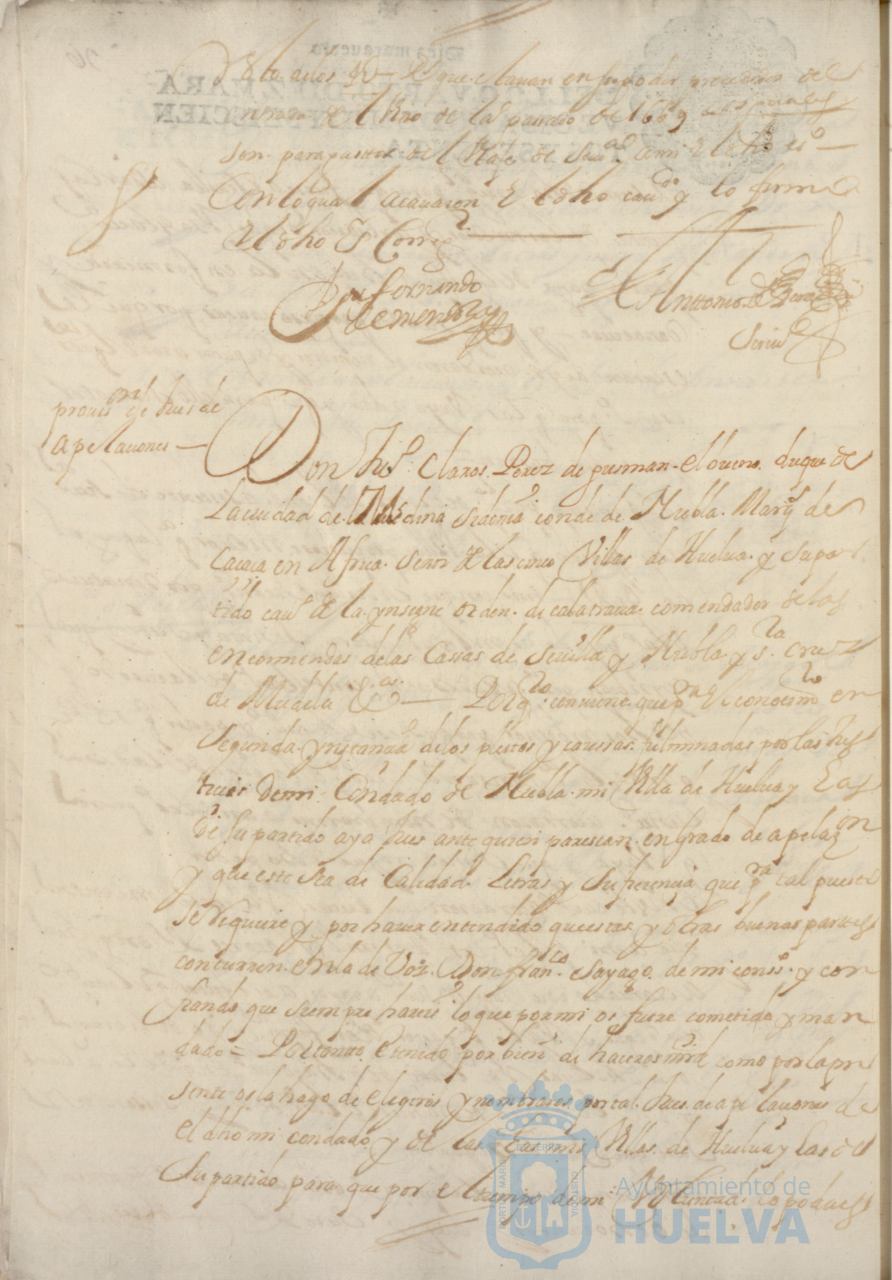 que estauan en su poder procedidos del
de el Rno de las pasado de 1669
son para gastos de el
Con lo qual acauaron el dho caudo y lo firmo
el dho Sr Corregr
Dn fernando
de mendoza
Anttonio de
Scriuo
prouisn de Jues de
apelaciones
Don Jun Claros Perez de gusman el bueno duque de
la ciudad de Medina sidonia conde de Niebla Marqs de
Cacaça en Africa Señor de las cinco Villas de Huelua y su par
tido cauo de la ynsigne orden de calatraua comendador de las
encomiendas de las Casas de Seuilla y Niebla y sta cruz
de Mudela &as Por qto conuiene que pra el conocimto en
segunda ynstancia de los pleitos y caussas fulminadas por las Jus
ticias de mi Condado de Niebla mi Villa de Huelua y Las
de su partido aya Jues ante quien parescan en grado de apelazon
y que este sea de Calidad Letras y Suficiencia que pra tal puesto
se Requiere y por hauer entendido que estas y otras buenas partes
concurren en la de Vos Don franco Sayago de mi conso y con
fiando que siempre hareis lo que por mi os fuere cometido y man
dado = Por tanto e tenido por bien de haceros mrd como por la pre
sente os la hago de elegiros y nombraros por tal Jues de apelaciones de
el dho mi condado y de las mis Villas de Huelua y las de
Su partido para que por el tiempo de mi Voluntad lo podais
Ayuntamiento de
HUELVA